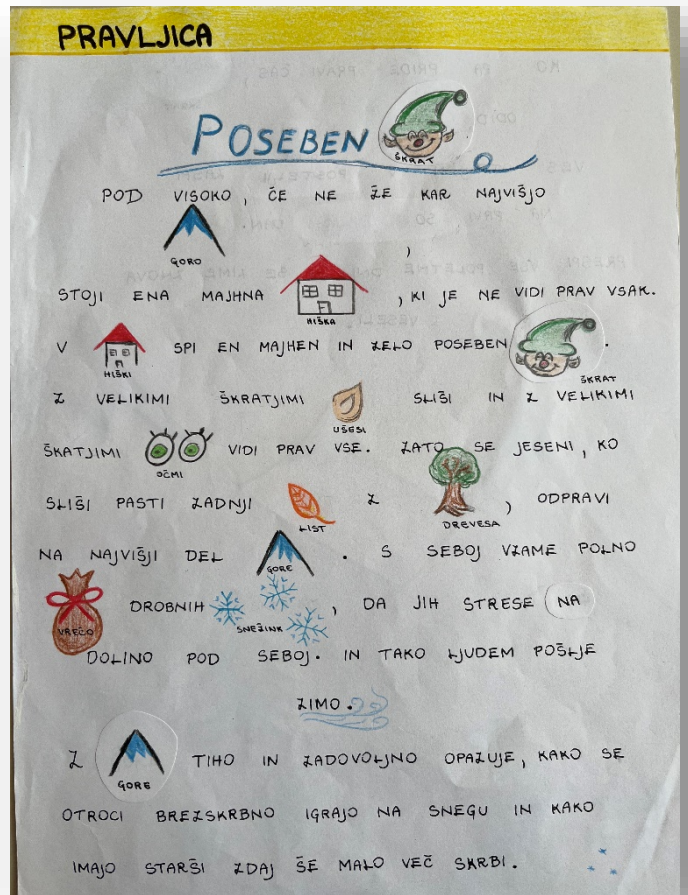 PRAVLJICA
POSEBEN
ŠKRAT
POD VISOKO, ČE NE ŽE KAR NAJVIŠJO
GORO ,
STOJI ENA MAJHNA HIŠKA , KI JE NE VIDI PRAV VSAK.
V HIŠKI SPI EN MAJHEN IN ZELO POSEBEN ŠKRAT .
Z VELIKIMI ŠKRATJIMI UŠESI SLIŠI IN Z VELIKIMI
ŠKATJIMI OČMI VIDI PRAV VSE. ZATO SE JESENI, KO
SLIŠI PASTI ZADNJI LIST Z DREVESA , ODPRAVI
NA NAJVIŠJI DEL GORE . S SEBOJ VZAME POLNO
VREČO DROBNIH SNEŽINK , DA JIH STRESE NA
DOLINO POD SEBOJ. IN TAKO LJUDEM POŠLJE
ZIMO.
Z GORE TIHO IN ZADOVOLJNO OPAZUJE, KAKO SE
OTROCI BREZSKRBNO IGRAJO NA SNEGU IN KAKO
IMAJO STARŠI ZDAJ ŠE MALO VEČ SKRBI.